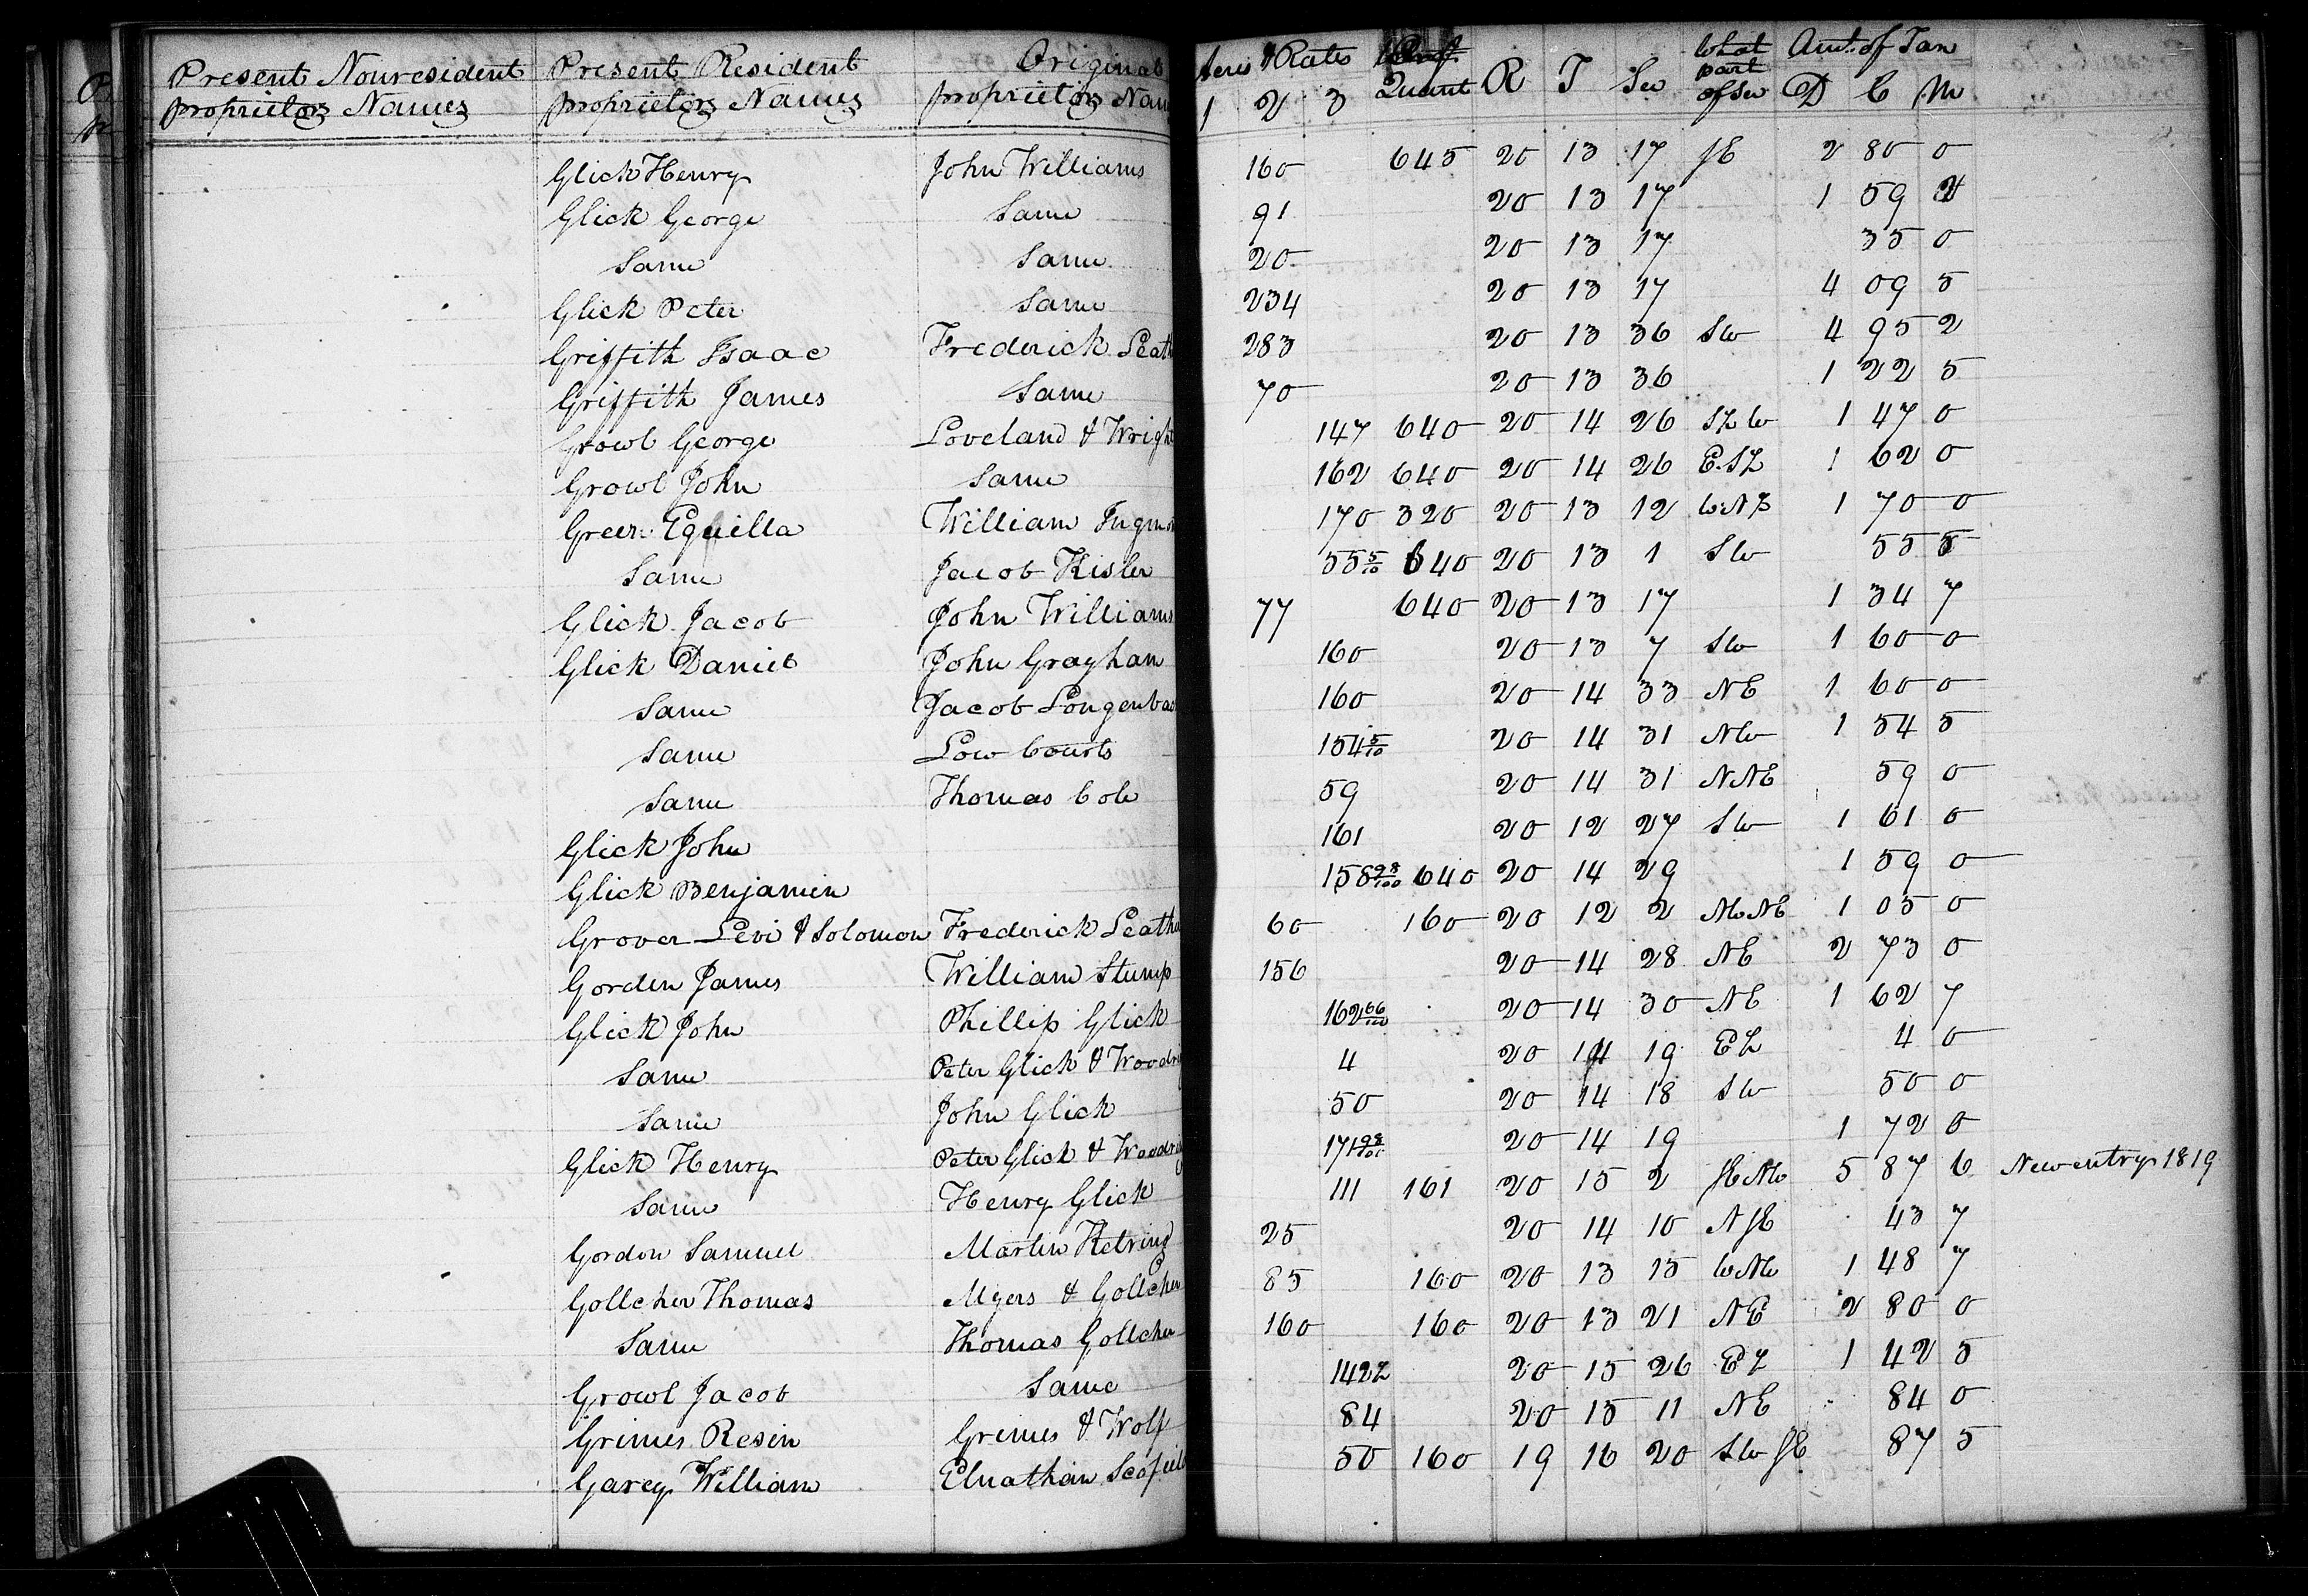 Present Nonresident proprietors Names | Present Resident proprietors Names | Original proprietors Nam | Acres & Rates 1 2 3 | Quant | R | T | Sec | What part of Sec | Amt. of Tax D C M
Glick Henry | John Williams | 160 | 645 | 20 | 13 | 17 | SE | 2 80 0
Glick George | Same | 91 | 20 | 13 | 17 | 1 59 2
Same | Same | 20 | 20 | 13 | 17 | 35 0
Glick Peter | Same | 234 | 20 | 13 | 17 | 4 09 5
Griffith Isaac | Frederick Leath | 283 | 20 | 13 | 36 | SW | 4 95 2
Griffith James | Same | 70 | 20 | 13 | 36 | 1 22 5
Growl George | Loveland & Wright | 147 | 640 | 20 | 14 | 26 | S½ W | 1 47 0
Growl John | Same | 162 | 640 | 20 | 14 | 26 | E.S½ | 1 62 0
Green Equilla | William | 170 | 320 | 20 | 13 | 12 | 1 70 0
Same | Jacob Kisler | 55 5/10 | 640 | 20 | 13 | 1 | SW | 55 5
Glick Jacob | John Williams | 77 | 640 | 20 | 13 | 17 | 1 34 7
Glick Daniel | John Graghan | 160 | 20 | 13 | 7 | SW | 1 60 0
Same | Jacob Longenba | 160 | 20 | 14 | 33 | NE | 1 60 0
Same | Low Courts | 154 5/10 | 20 | 14 | 31 | NW | 1 54 5
Same | Thomas Cole | 59 | 20 | 14 | 31 | NNE | 59 0
Glick John | 161 | 20 | 12 | 27 | SW | 1 61 0
Glick Benjamin | 158 98/100 | 640 | 20 | 14 | 29 | 1 59 0
Grover Levi & Solomon | Frederick Leathe | 60 | 160 | 20 | 12 | 2 | NWNE | 1 05 0
Gorden James | William Stump | 156 | 20 | 14 | 28 | NE | 2 73 0
Glick John | Phillip Glick | 162 66/100 | 20 | 14 | 30 | NE | 1 62 7
Same | Peter Glick & Woodri | 4 | 20 | 14 | 19 | E½ | 4 0
Same | John Glick | 50 | 20 | 14 | 18 | SW | 50 0
Glick Henry | Peter Glick & Woodri | 171 | 20 | 14 | 19 | 1 72 0
Same | Henry Glick | 111 | 161 | 20 | 15 | 2 | SENW | 5 87 6 | New entry 1819
Gordon Samuel | Martin Ketring | 25 | 20 | 14 | 10 | NSE | 43 7
Gollcher Thomas | Myers & Gollcher | 85 | 160 | 20 | 13 | 15 | WNW | 1 48 7
Same | Thomas Gollcher | 160 | 160 | 20 | 13 | 21 | NE | 2 80 0
Growl Jacob | Same | 142½ | 20 | 15 | 26 | E½ | 1 42 5
Grimes Resin | Grimes & Wolf | 84 | 20 | 15 | 11 | NE | 84 0
Garey William | Elnathan Scofield | 50 | 160 | 19 | 16 | 20 | SW SE | 87 5